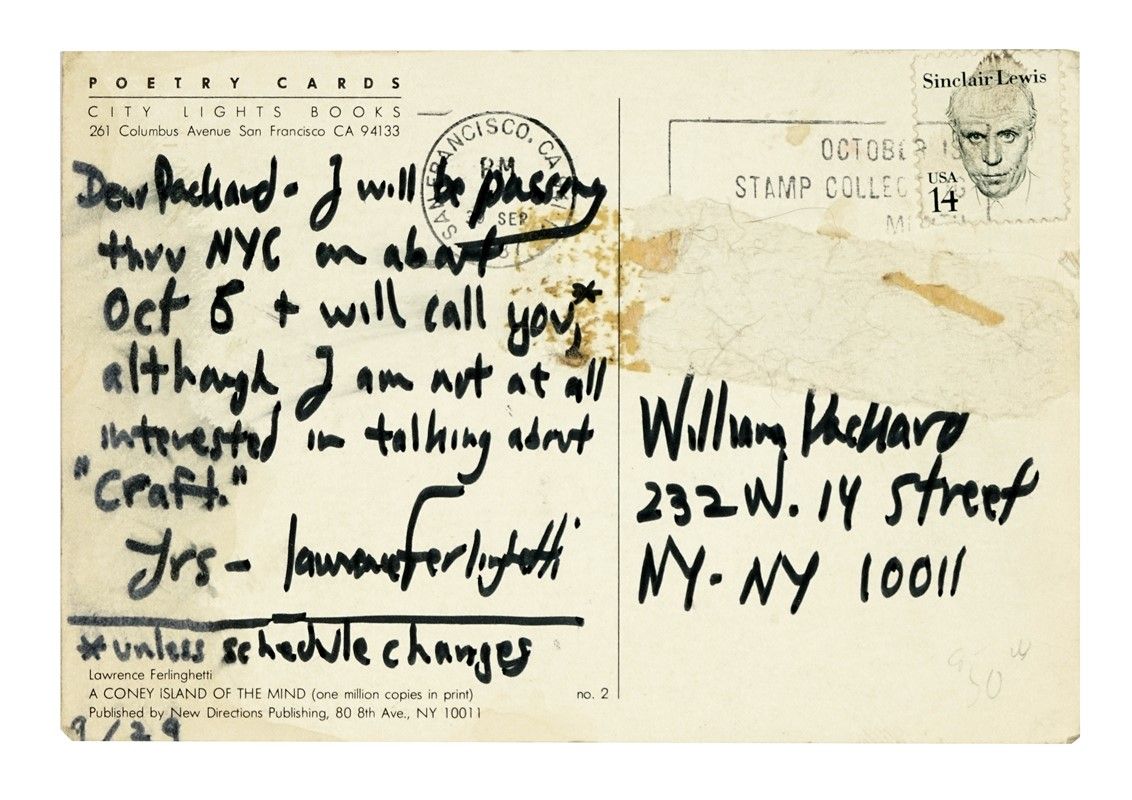 POETRY CARDS
CITY LIGHTS BOOKS
261 Columbus Avenue San Francisco CA 94133
SAN FRANCISCO, CA
PM
30 SEP
OCTOBER IS
STAMP COLLECTING
Sinclair Lewis
USA
14
Dear Packard - I will be passing
thru NYC on about
Oct 8 + will call you,*
although I am not at all
interested in talking about
"Craft."
Yrs - Lawrence Ferlinghetti
*unless schedule changes
Lawrence Ferlinghetti
A CONEY ISLAND OF THE MIND (one million copies in print)
no. 2
Published by New Directions Publishing, 80 8th Ave., NY 10011
9/29
William Packard
232 W. 14 Street
NY - NY 10011